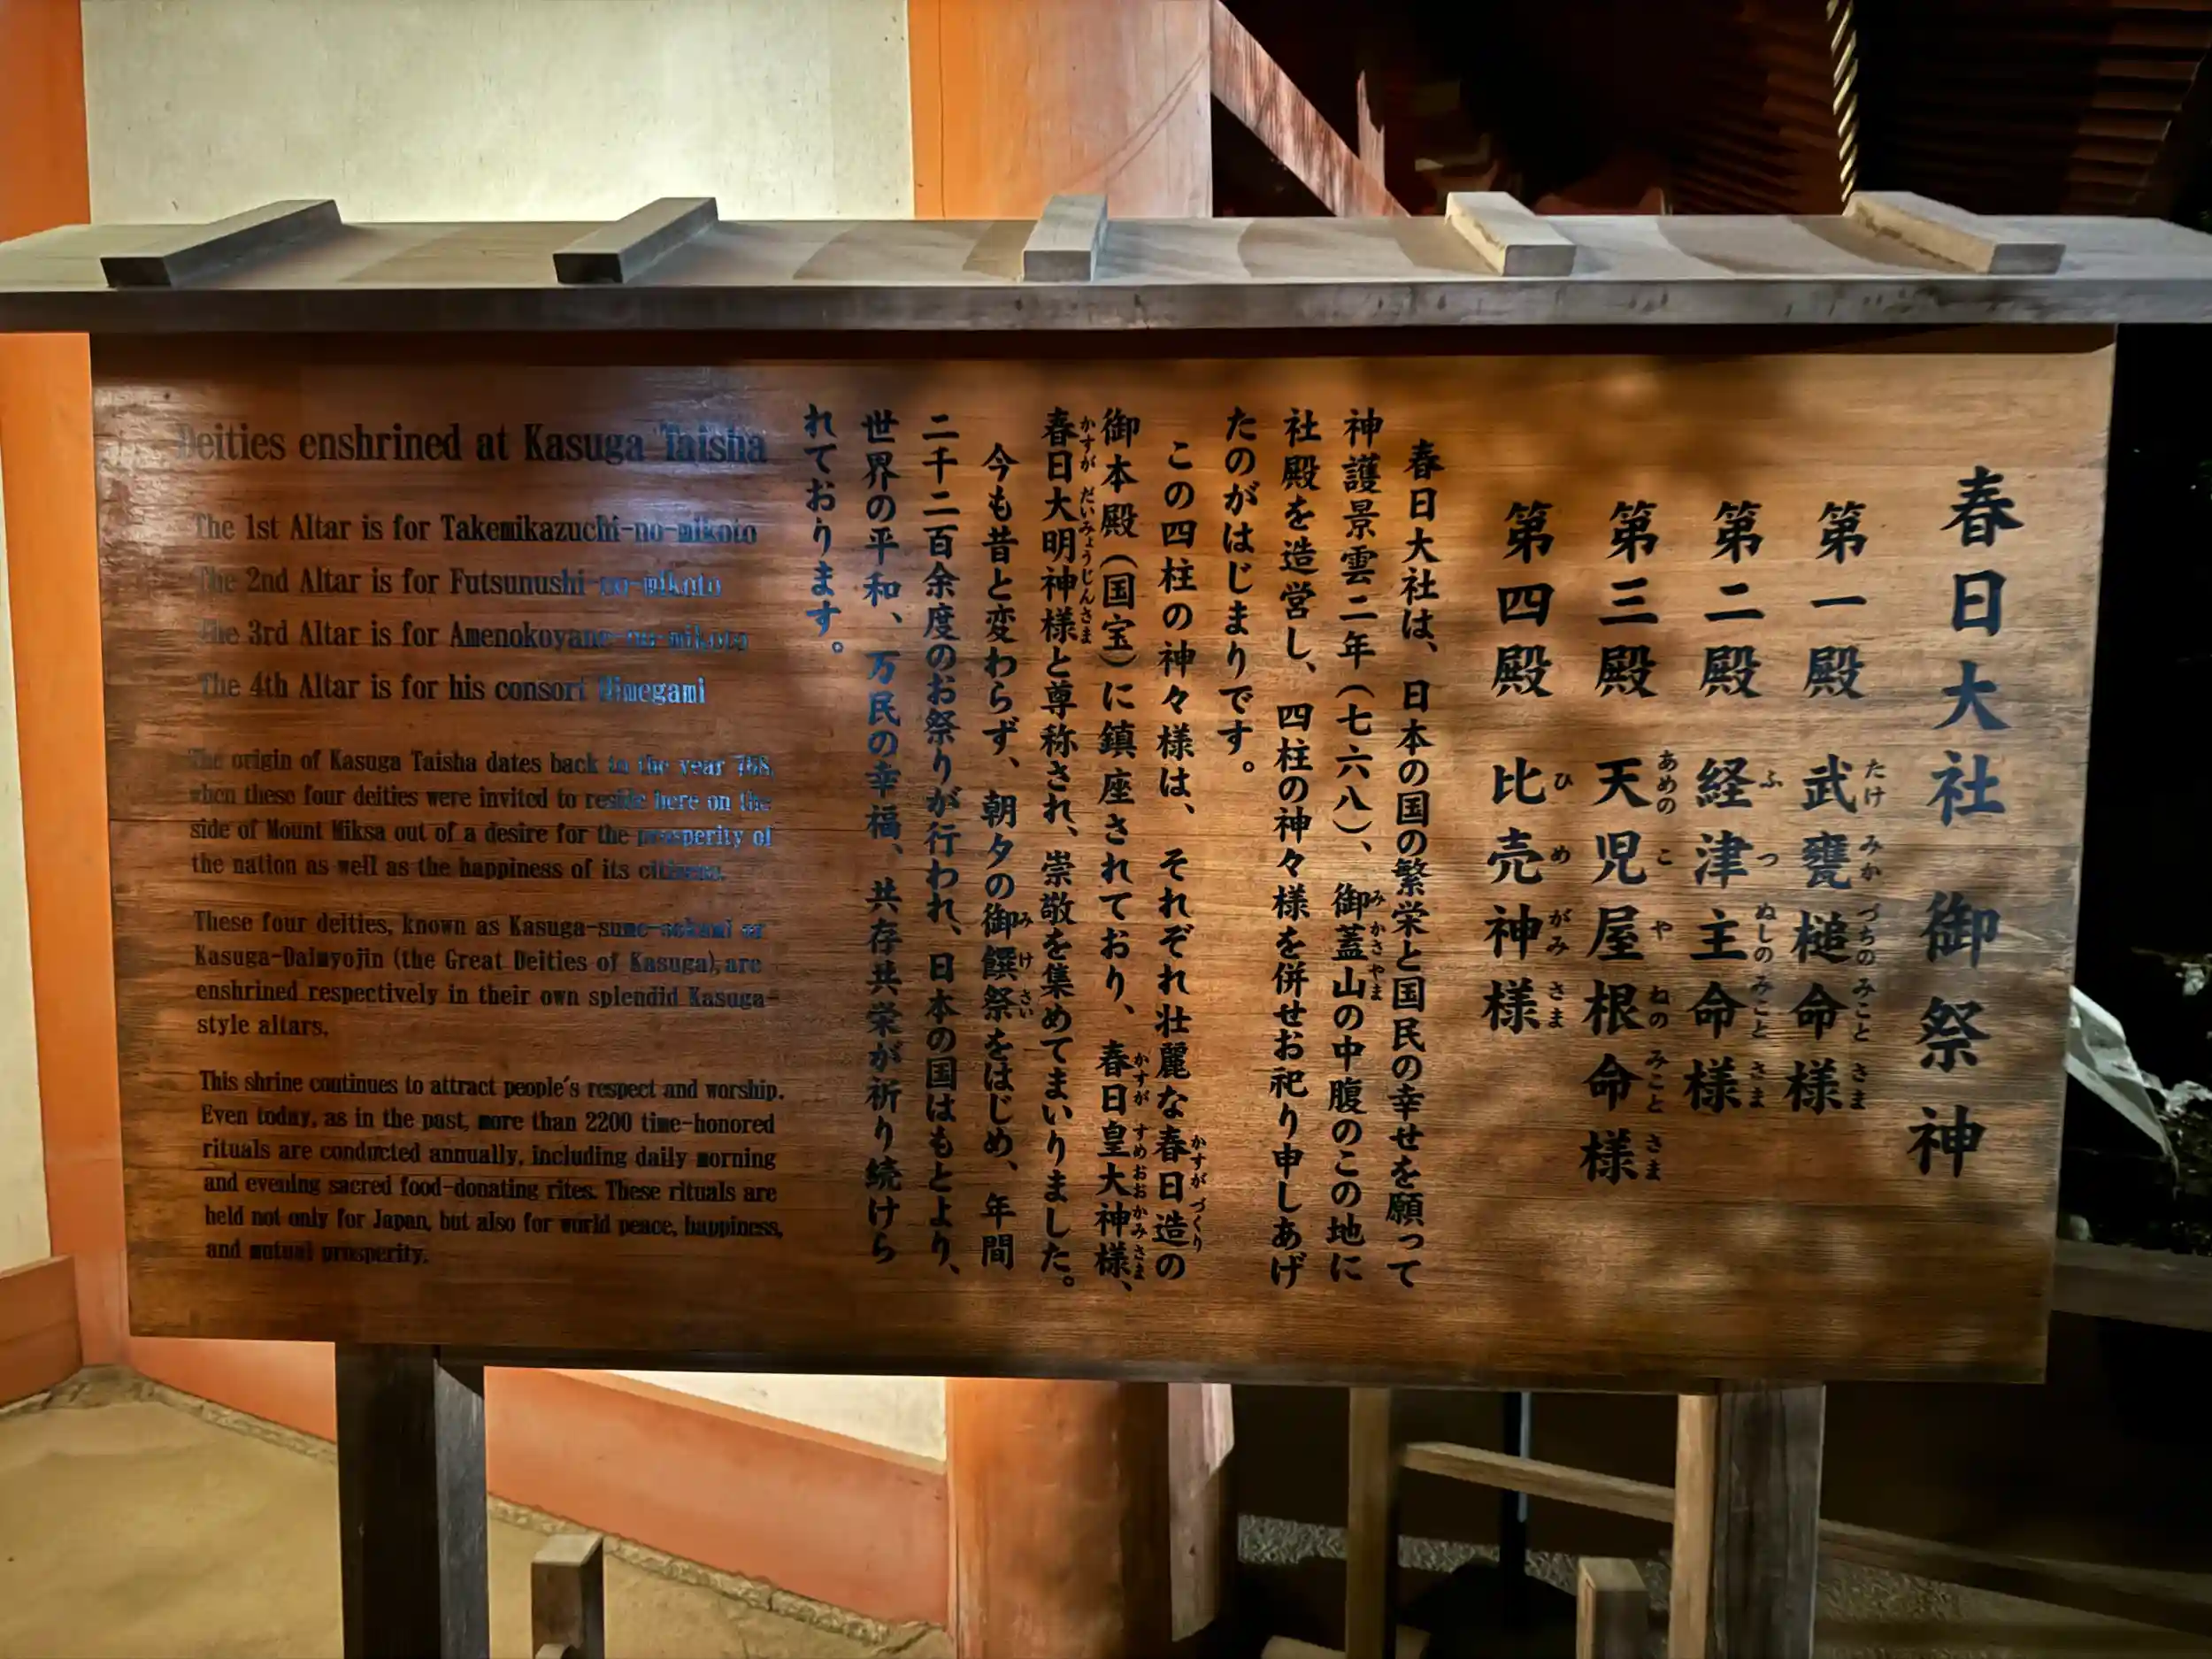 春日大社 御祭神
第一殿 武甕槌命様
たけ みか づちの みこと さま
第二殿 経津主命様
ふ つ ぬしの みこと さま
第三殿 天児屋根命様
あめの こ や ねの みこと さま
第四殿 比売神様
ひ め がみ さま
春日大社は、日本の国の繁栄と国民の幸せを願って
神護景雲二年(七六八)、御蓋山の中腹のこの地に
み かさ やま
社殿を造営し、四柱の神々様を併せお祀り申しあげ
たのがはじまりです。
この四柱の神々様は、それぞれ壮麗な春日造の
かすが づくり
御本殿(国宝)に鎮座されており、春日皇大神様、
かすが すめおおかみさま
春日大明神様と尊称され、崇敬を集めてまいりました。
かすが だいみょうじんさま
今も昔と変わらず、朝夕の御饌祭をはじめ、年間
み け さい
二千二百余度のお祭りが行われ、日本の国はもとより、
世界の平和、万民の幸福、共存共栄が祈り続けら
れております。
Deities enshrined at Kasuga Taisha
The 1st Altar is for Takemikazuchi-no-mikoto
The 2nd Altar is for Futsunushi-no-mikoto
The 3rd Altar is for Amenokoyane-no-mikoto
The 4th Altar is for his consort Himegami
The origin of Kasuga Taisha dates back to the year 768,
when these four deities were invited to reside here on the
side of Mount Miksa out of a desire for the prosperity of
the nation as well as the happiness of its citizens.
These four deities, known as Kasuga-sume-ookami or
Kasuga-Daimyojin (the Great Deities of Kasuga), are
enshrined respectively in their own splendid Kasuga-
style altars.
This shrine continues to attract people's respect and worship.
Even today, as in the past, more than 2200 time-honored
rituals are conducted annually, including daily morning
and evening sacred food-donating rites. These rituals are
held not only for Japan, but also for world peace, happiness,
and mutual prosperity.